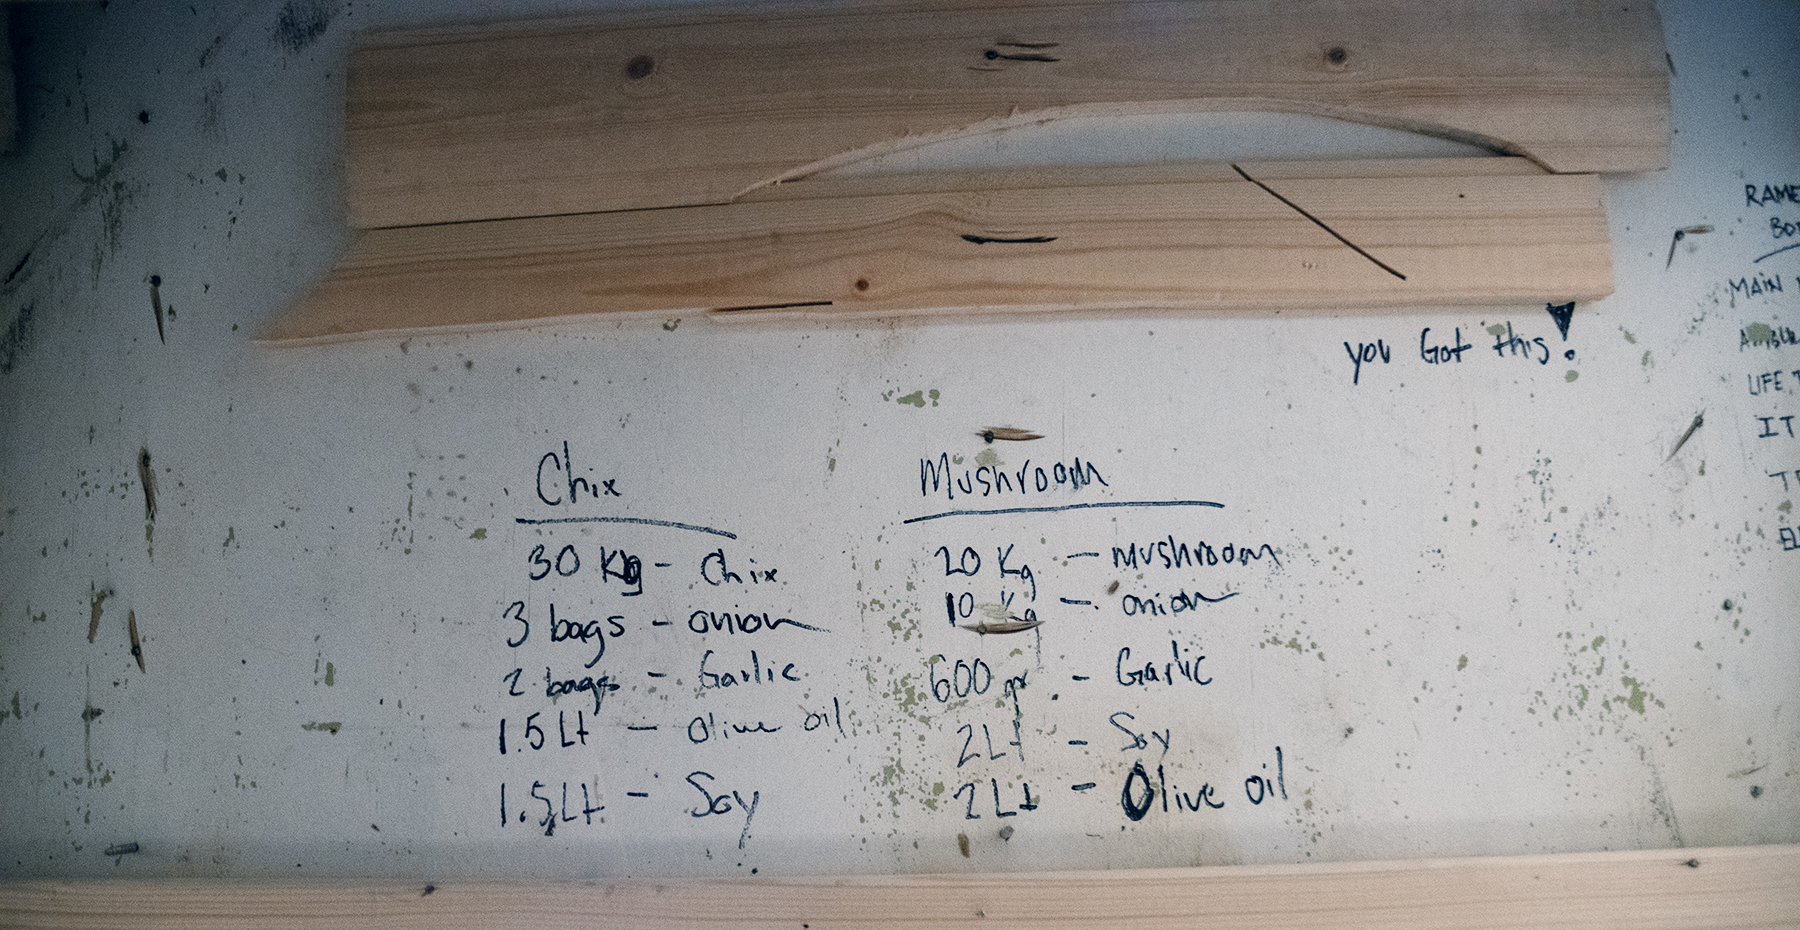 you Got this!
Chix
30 Kg - Chix
3 bags - onion
2 bags - Garlic
1.5 Lt - Olive oil
1.5 Lt - Soy
Mushroom
20 Kg - mushroom
10 Kg - onion
600 gr. - Garlic
2 Lt - Soy
2 Lt - Olive oil
MAIN
LIFE
IT